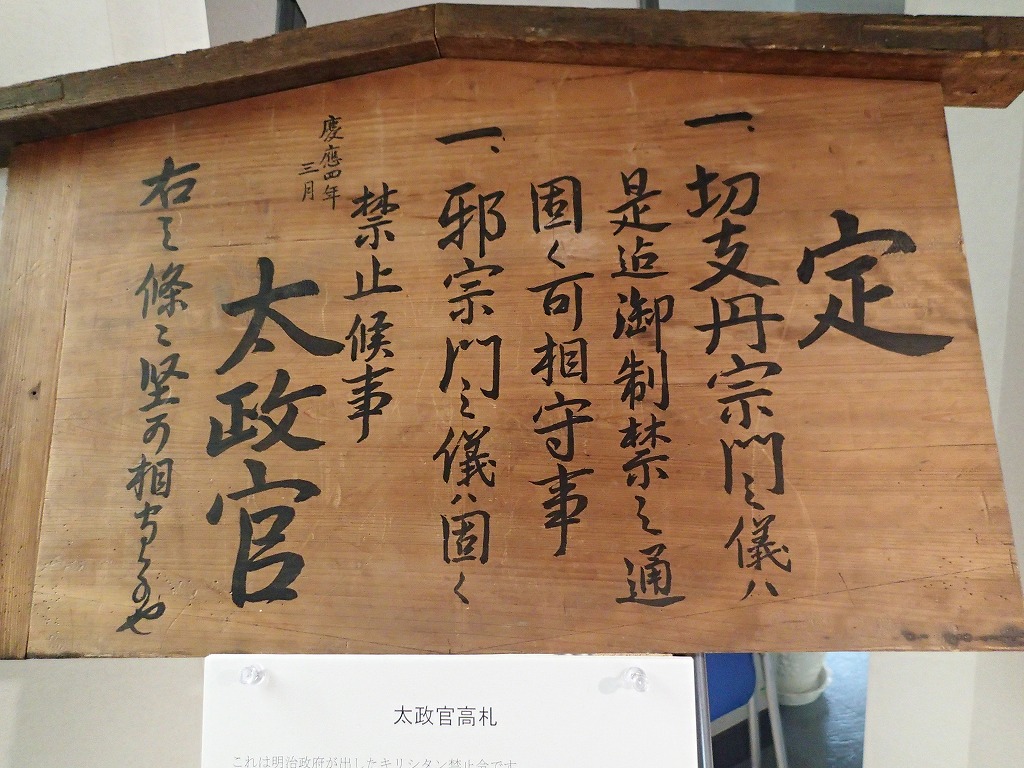 定
一、切支丹宗門之儀ハ
是迠御制禁之通
固く可相守事
一、邪宗門之儀ハ固く
禁止候事
慶應四年
三月
太政官
右之條々堅可相守もの也
太政官高札
これは明治政府が出したキリシタン禁止令です